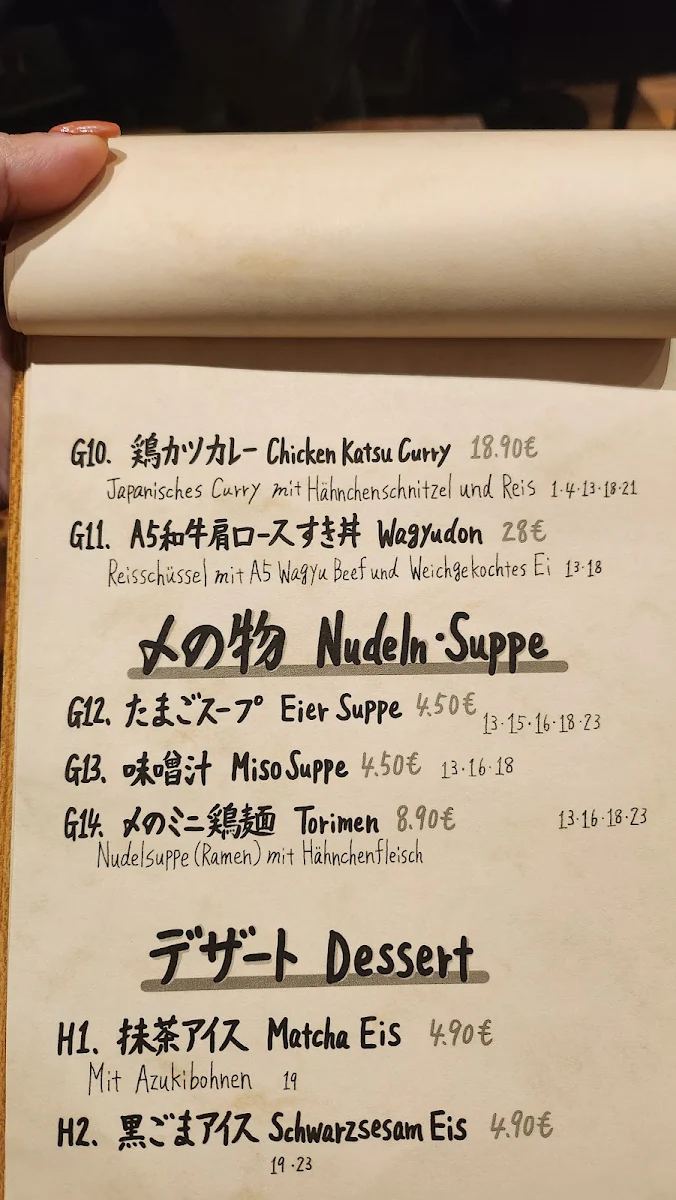 G10. 鶏カツカレー Chicken Katsu Curry 18.90€
Japanisches Curry mit Hähnchenschnitzel und Reis 1·4·13·18·21
G11. A5和牛肩ロースすき丼 Wagyudon 28€
Reisschüssel mit A5 Wagyu Beef und Weichgekochtes Ei 13·18
〆の物 Nudeln·Suppe
G12. たまごスープ Eier Suppe 4.50€ 13·15·16·18·23
G13. 味噌汁 Miso Suppe 4.50€ 13·16·18
G14. 〆のミニ鶏麺 Torimen 8.90€ 13·16·18·23
Nudelsuppe (Ramen) mit Hähnchenfleisch
デザート Dessert
H1. 抹茶アイス Matcha Eis 4.90€
Mit Azukibohnen 19
H2. 黒ごまアイス Schwarzsesam Eis 4.90€
19·23